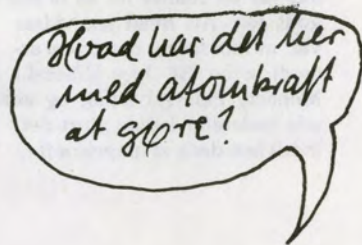 Hvad har det her
med atomkraft
at gøre?